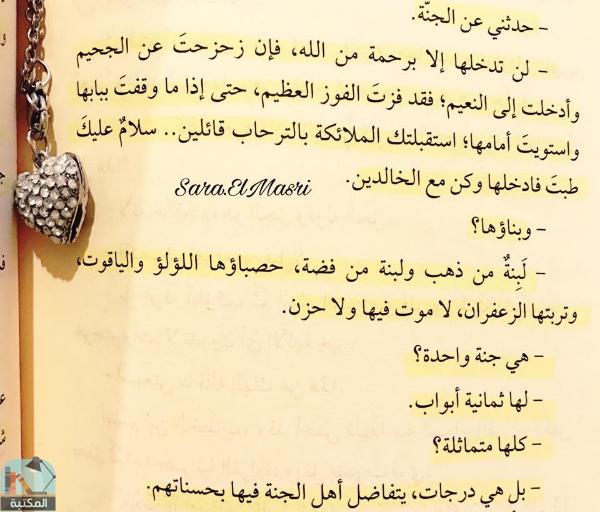 - حدثني عن الجنّة.
- لن تدخلها إلا برحمة من الله، فإن زحزحتَ عن الجحيم
وأدخلت إلى النعيم؛ فقد فزتَ الفوز العظيم، حتى إذا ما وقفتَ ببابها
واستويتَ أمامها؛ استقبلتك الملائكة بالترحاب قائلين.. سلامٌ عليكَ
طبتَ فادخلها وكن مع الخالدين.
Sara.El Masri
- وبناؤها؟
- لَبِنةٌ من ذهب ولبنة من فضة، حصباؤها اللؤلؤ والياقوت،
وتربتها الزعفران، لا موت فيها ولا حزن.
- هي جنة واحدة؟
- لها ثمانية أبواب.
- كلها متماثلة؟
- بل هي درجات، يتفاضل أهل الجنة فيها بحسناتهم.
المكتبة